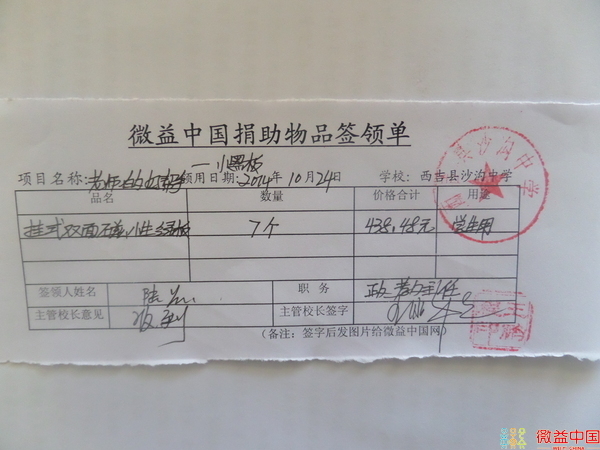 微益中国捐助物品签领单
——小黑板
项目名称:老师的好帮手 领用日期:2014年10月24日 学校:西吉县沙沟中学
品名 数量 价格合计 用途
挂式双面 7个 438.48元 学生用
签领人姓名 陆 职务 政教主任
主管校长意见 主管校长签字
(备注:签字后发图片给微益中国网)
县沙沟中学
微益中国